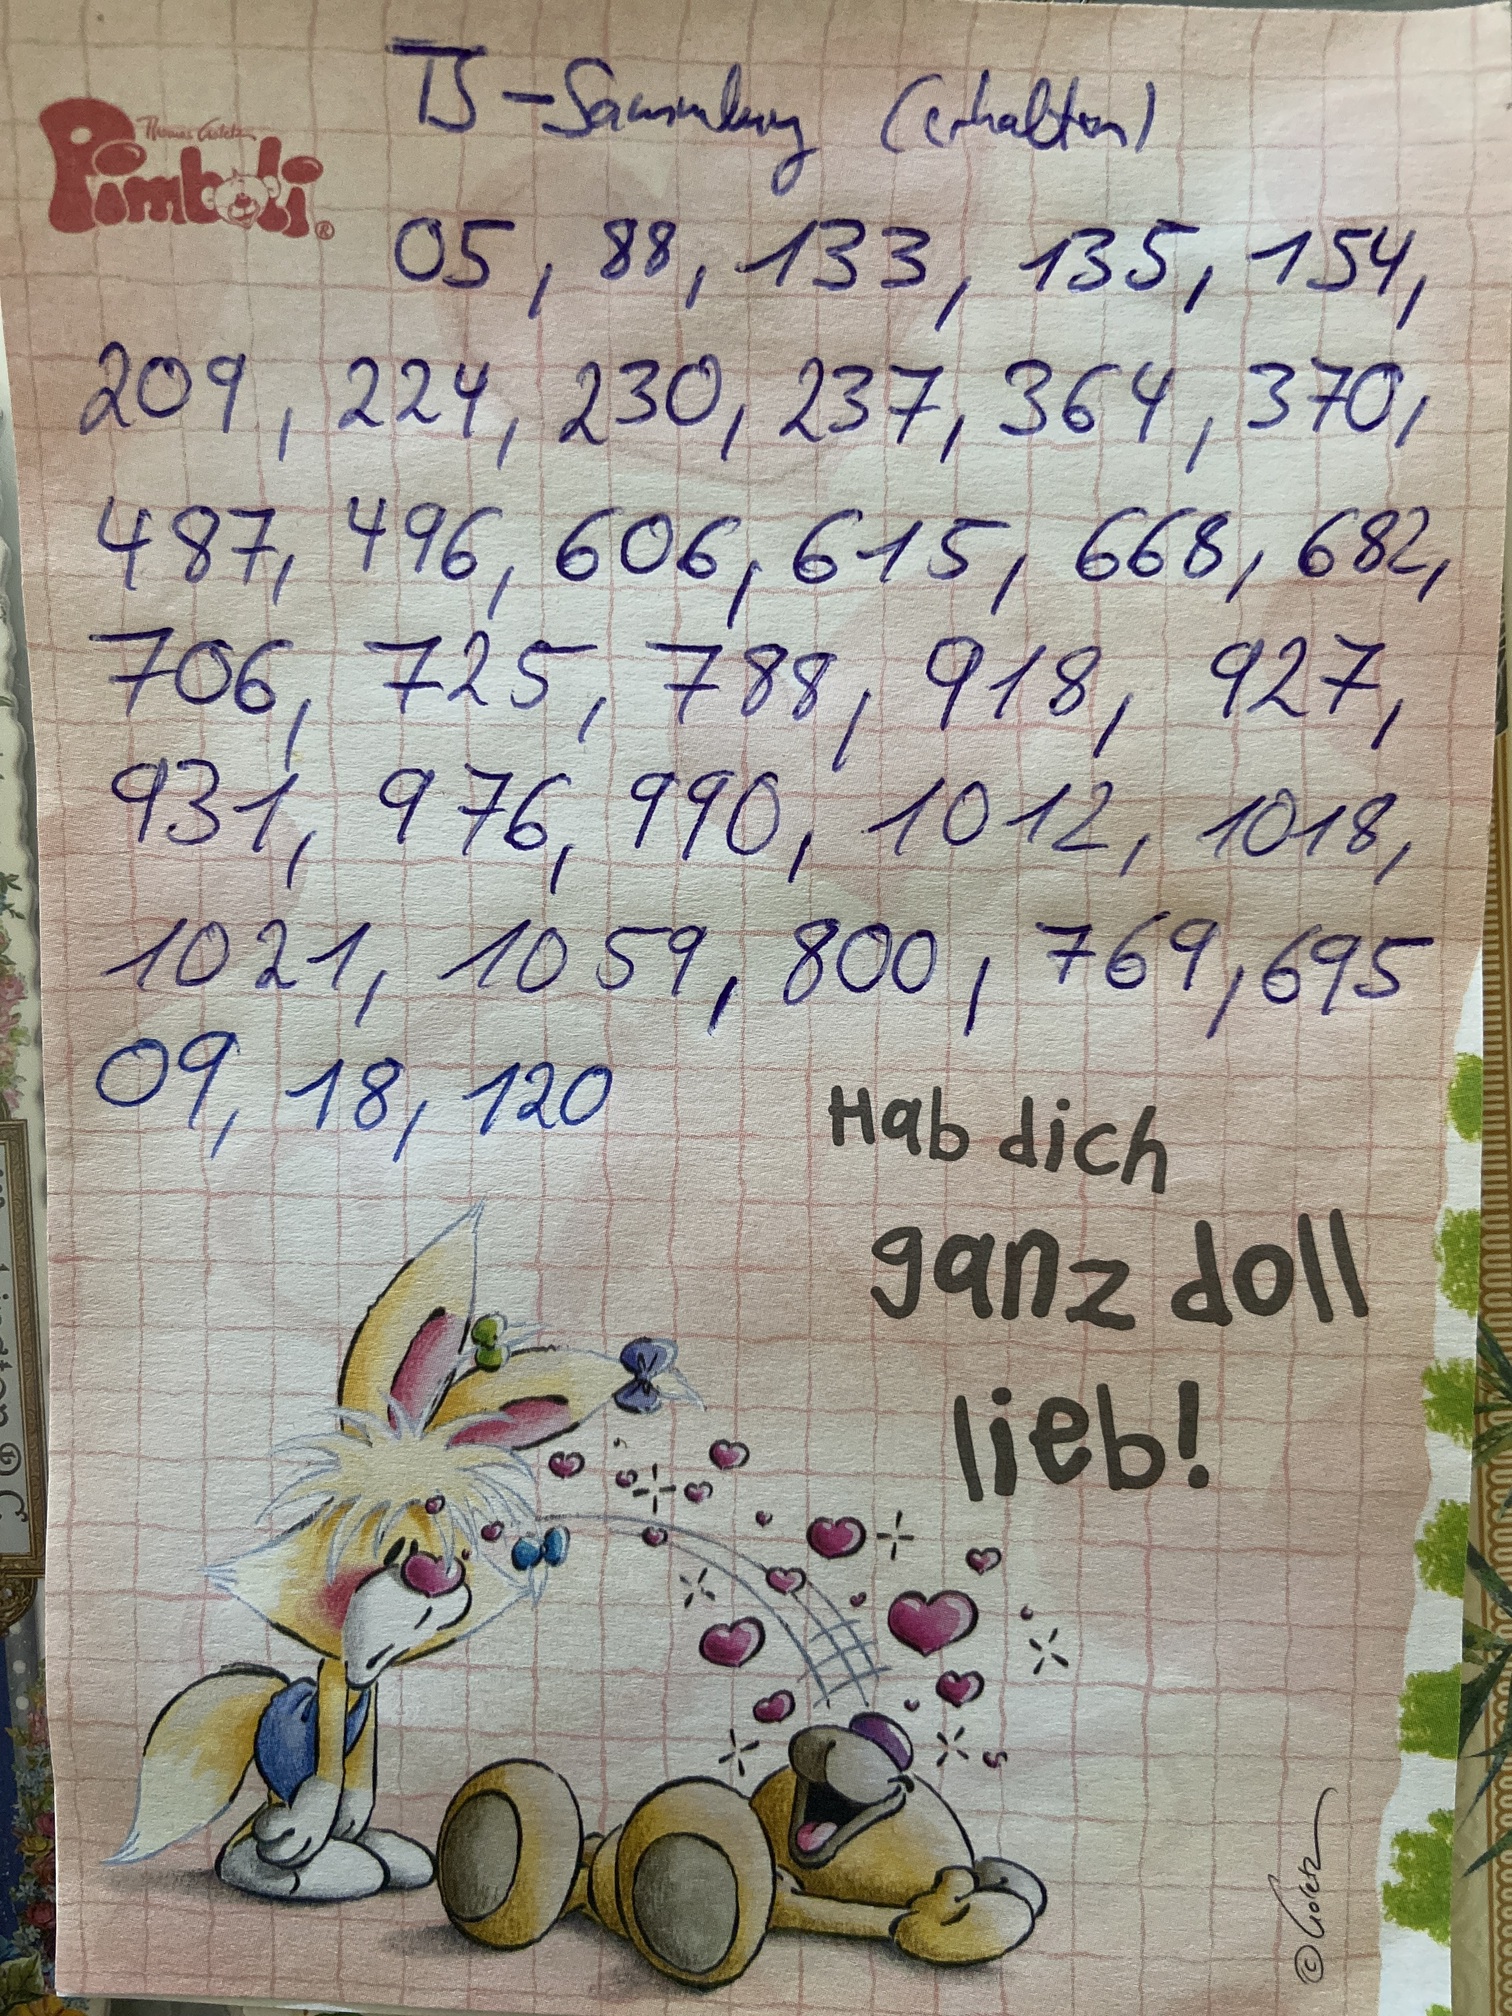 TS-Sammlung (erhalten)
Thomas Goletz
Pimboli®
05, 88, 133, 135, 154,
209, 224, 230, 237, 364, 370,
487, 496, 606, 615, 668, 682,
706, 725, 788, 918, 927,
931, 976, 990, 1012, 1018,
1021, 1059, 800, 769, 695
09, 18, 120
Hab dich
ganz doll
lieb!
© Goletz